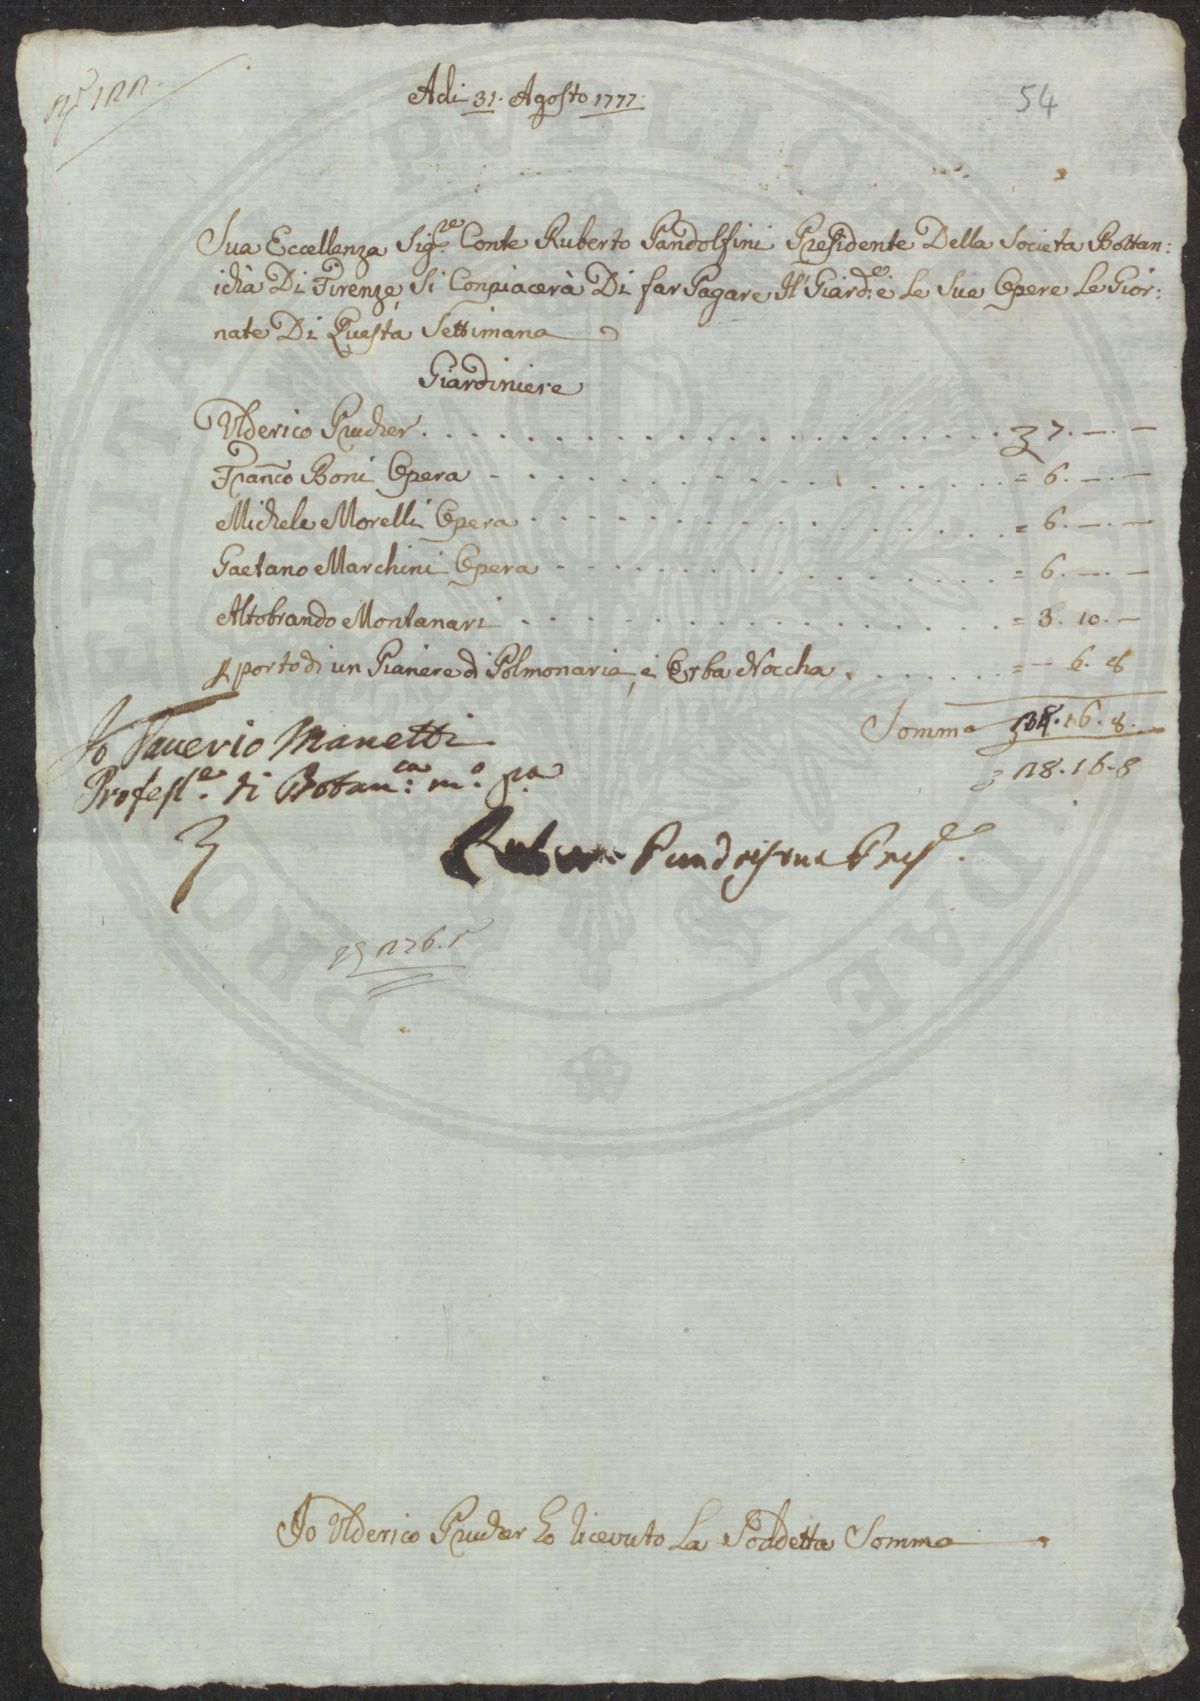 Adi 31. Agosto 1777.
54
Sua Eccellenza Sig.re Conte Ruberto Pandolfini Presidente Della Societa Bottan:
ichà Di Firenze, Si Conpiacerà Di far Pagare Il Giard.e è Le Sue Opere Le Gior:
nate Di Questa Settimana
Giardiniere
Ulderico Prucher . . . . . . . . . . 7. — . —
Franco Boni Opera . . . . . . . . . . = 6. — . —
Michele Morelli Opera . . . . . . . . . . = 6. — . —
Gaetano Marchini Opera . . . . . . . . . . = 6. — . —
Altobrando Montanari . . . . . . . . . . = 3. 10. —
p porto di un Pianere di Polmonaria, è Erba Noccha . . . . . . . = — 6. 8
Somma .16.8.
28.16.8
Io Saverio Manetti
Profess.e di Botan.ca m.o p.a
Pres.e
Io Ulderico Prucher ho ricevuto La Soddetta Somma
PROPRIETAS PUBLICA CIVICAE